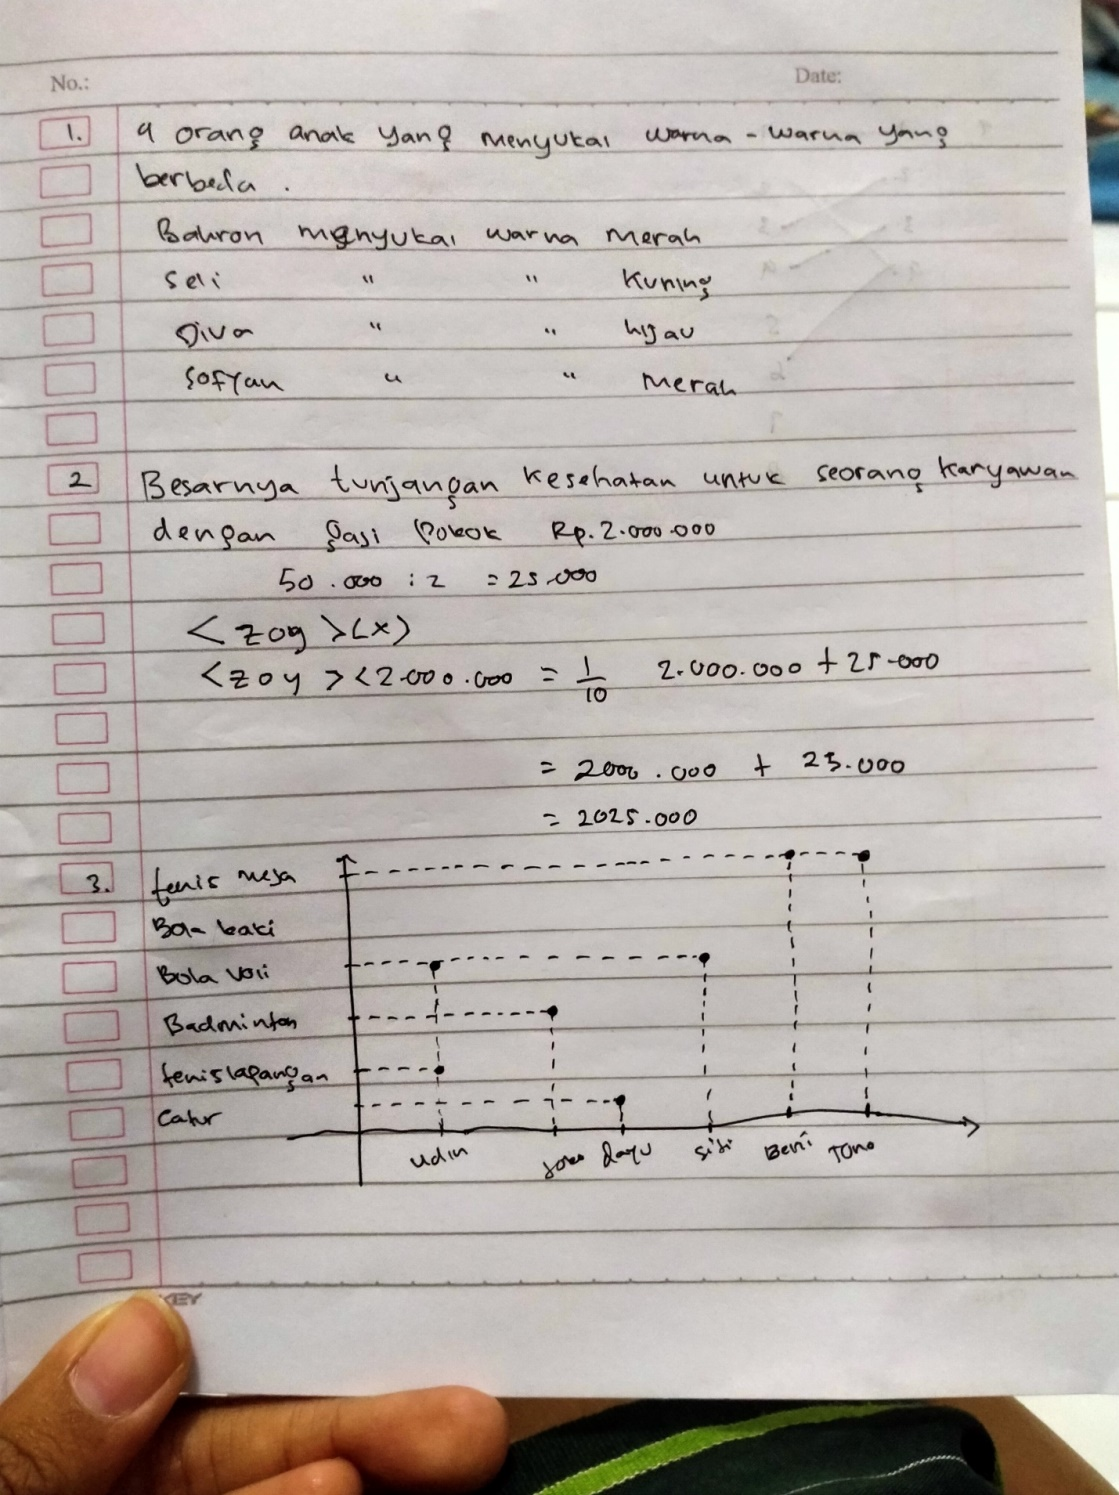 No.:
Date:
1. 4 orang anak yang menyukai warna - warna yang
berbeda .
Bahron menyukai warna merah
Seli " " Kuning
Diva " " hijau
Sofyan " " merah
2 Besarnya tunjangan kesehatan untuk seorang karyawan
dengan gaji Pokok Rp. 2.000.000
50.000 : 2 = 25.000
< zog >(x)
< zoy > < 2.000.000 = 1/10 2.000.000 + 25.000
= 2000.000 + 25.000
= 2025.000
3. tenis meja
Bola kaki
Bola Voli
Badminton
tenis lapangan
Catur
Udin Joko dayu sisi Beni Tono
KEY